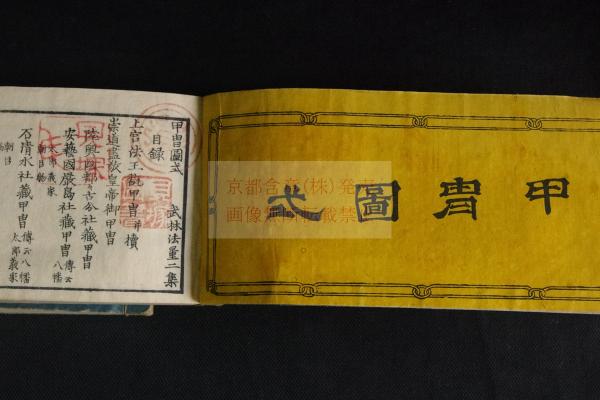 甲冑圖式
甲冑圖式 武林法量二集
目録
上宮法王玩甲冑并櫝
崇道盡敬皇帝御甲冑
陸奥國都々古分社藏甲冑
安藝國嚴島社藏甲冑 傳云八幡
石清水社藏甲冑 傳云八幡
太郎義家
京都含章(株)発
画像無断転載禁